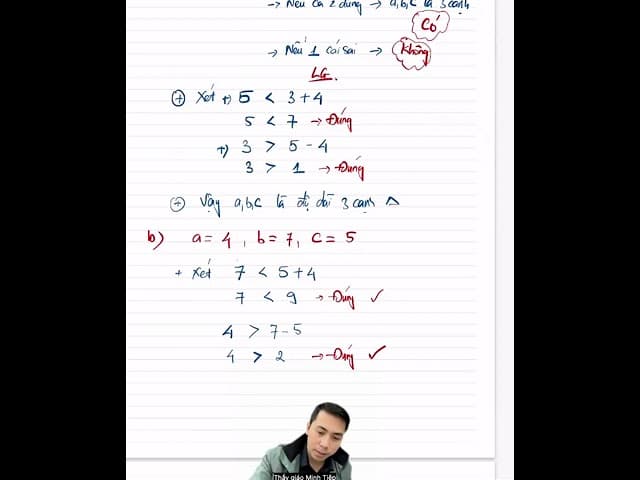 → Nếu cả 2 đúng → a,b,c là 3 cạnh
Có
→ Nếu 1 cái sai → Không
LG.
+ Xét +) 5 < 3+4
5 < 7 → Đúng
+) 3 > 5-4
3 > 1 → Đúng
+ Vậy a,b,c là độ dài 3 cạnh Δ
b) a = 4, b = 7, c = 5
+ Xét 7 < 5+4
7 < 9 → Đúng ✓
4 > 7-5
4 > 2 → Đúng ✓
Thầy giáo Minh Tiệp